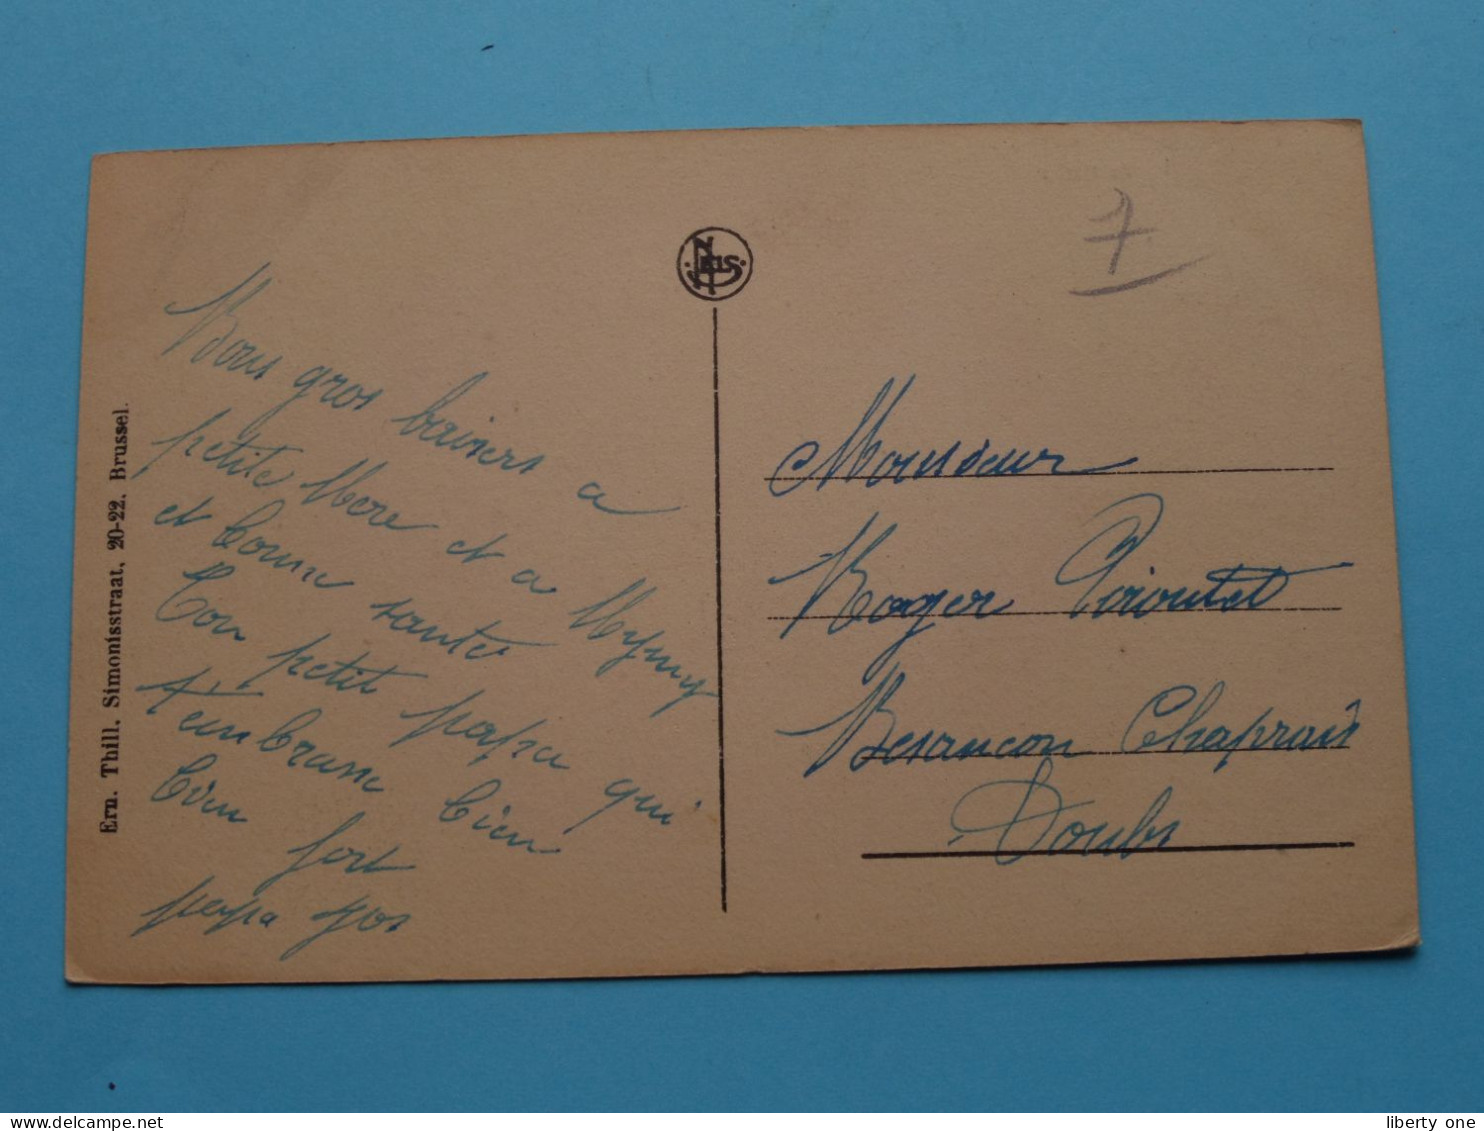 Bons gros baisers a
petite Mere et a Mymy
et bonne santé
Ton petit papa qui
t'embrasse bien
bien fort
papa Jos
Ern. Thill. Simonisstraat, 20-22. Brussel.
NELS
7
Monsieur
Roger Pioutet
Besancon Chaprais
Doubs
liberty one